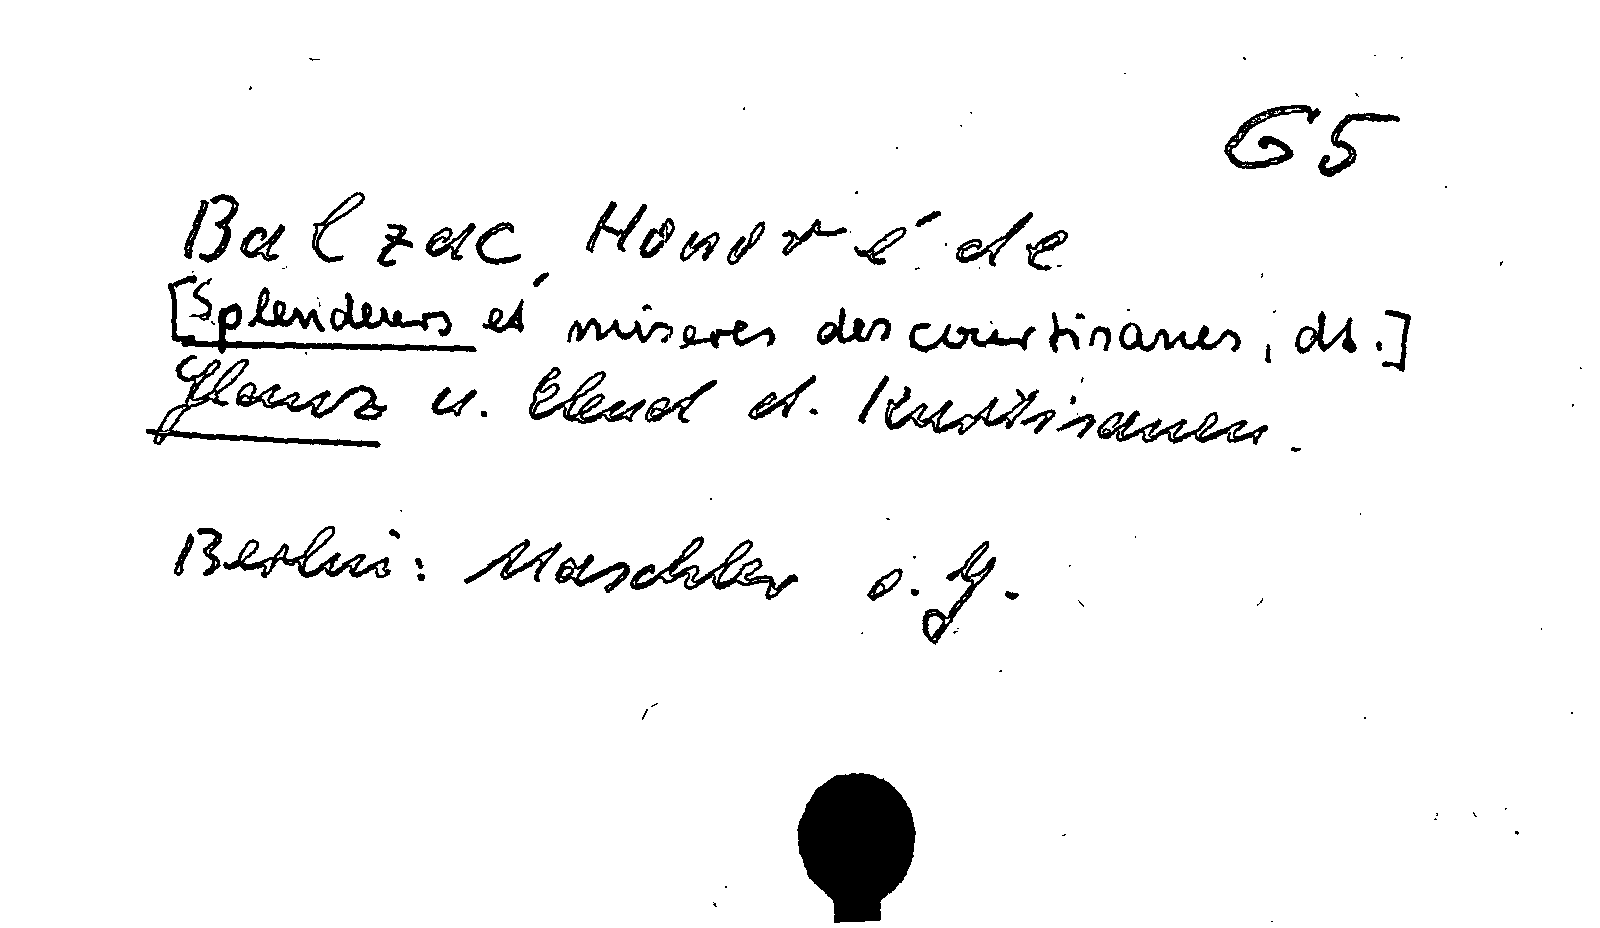 G5
Balzac, Honoré de
[Splendeurs et miseres des courtisanes, dt.]
Glanz u. Elend d. Kurtisanen.
Berlin: Maschler o. J.